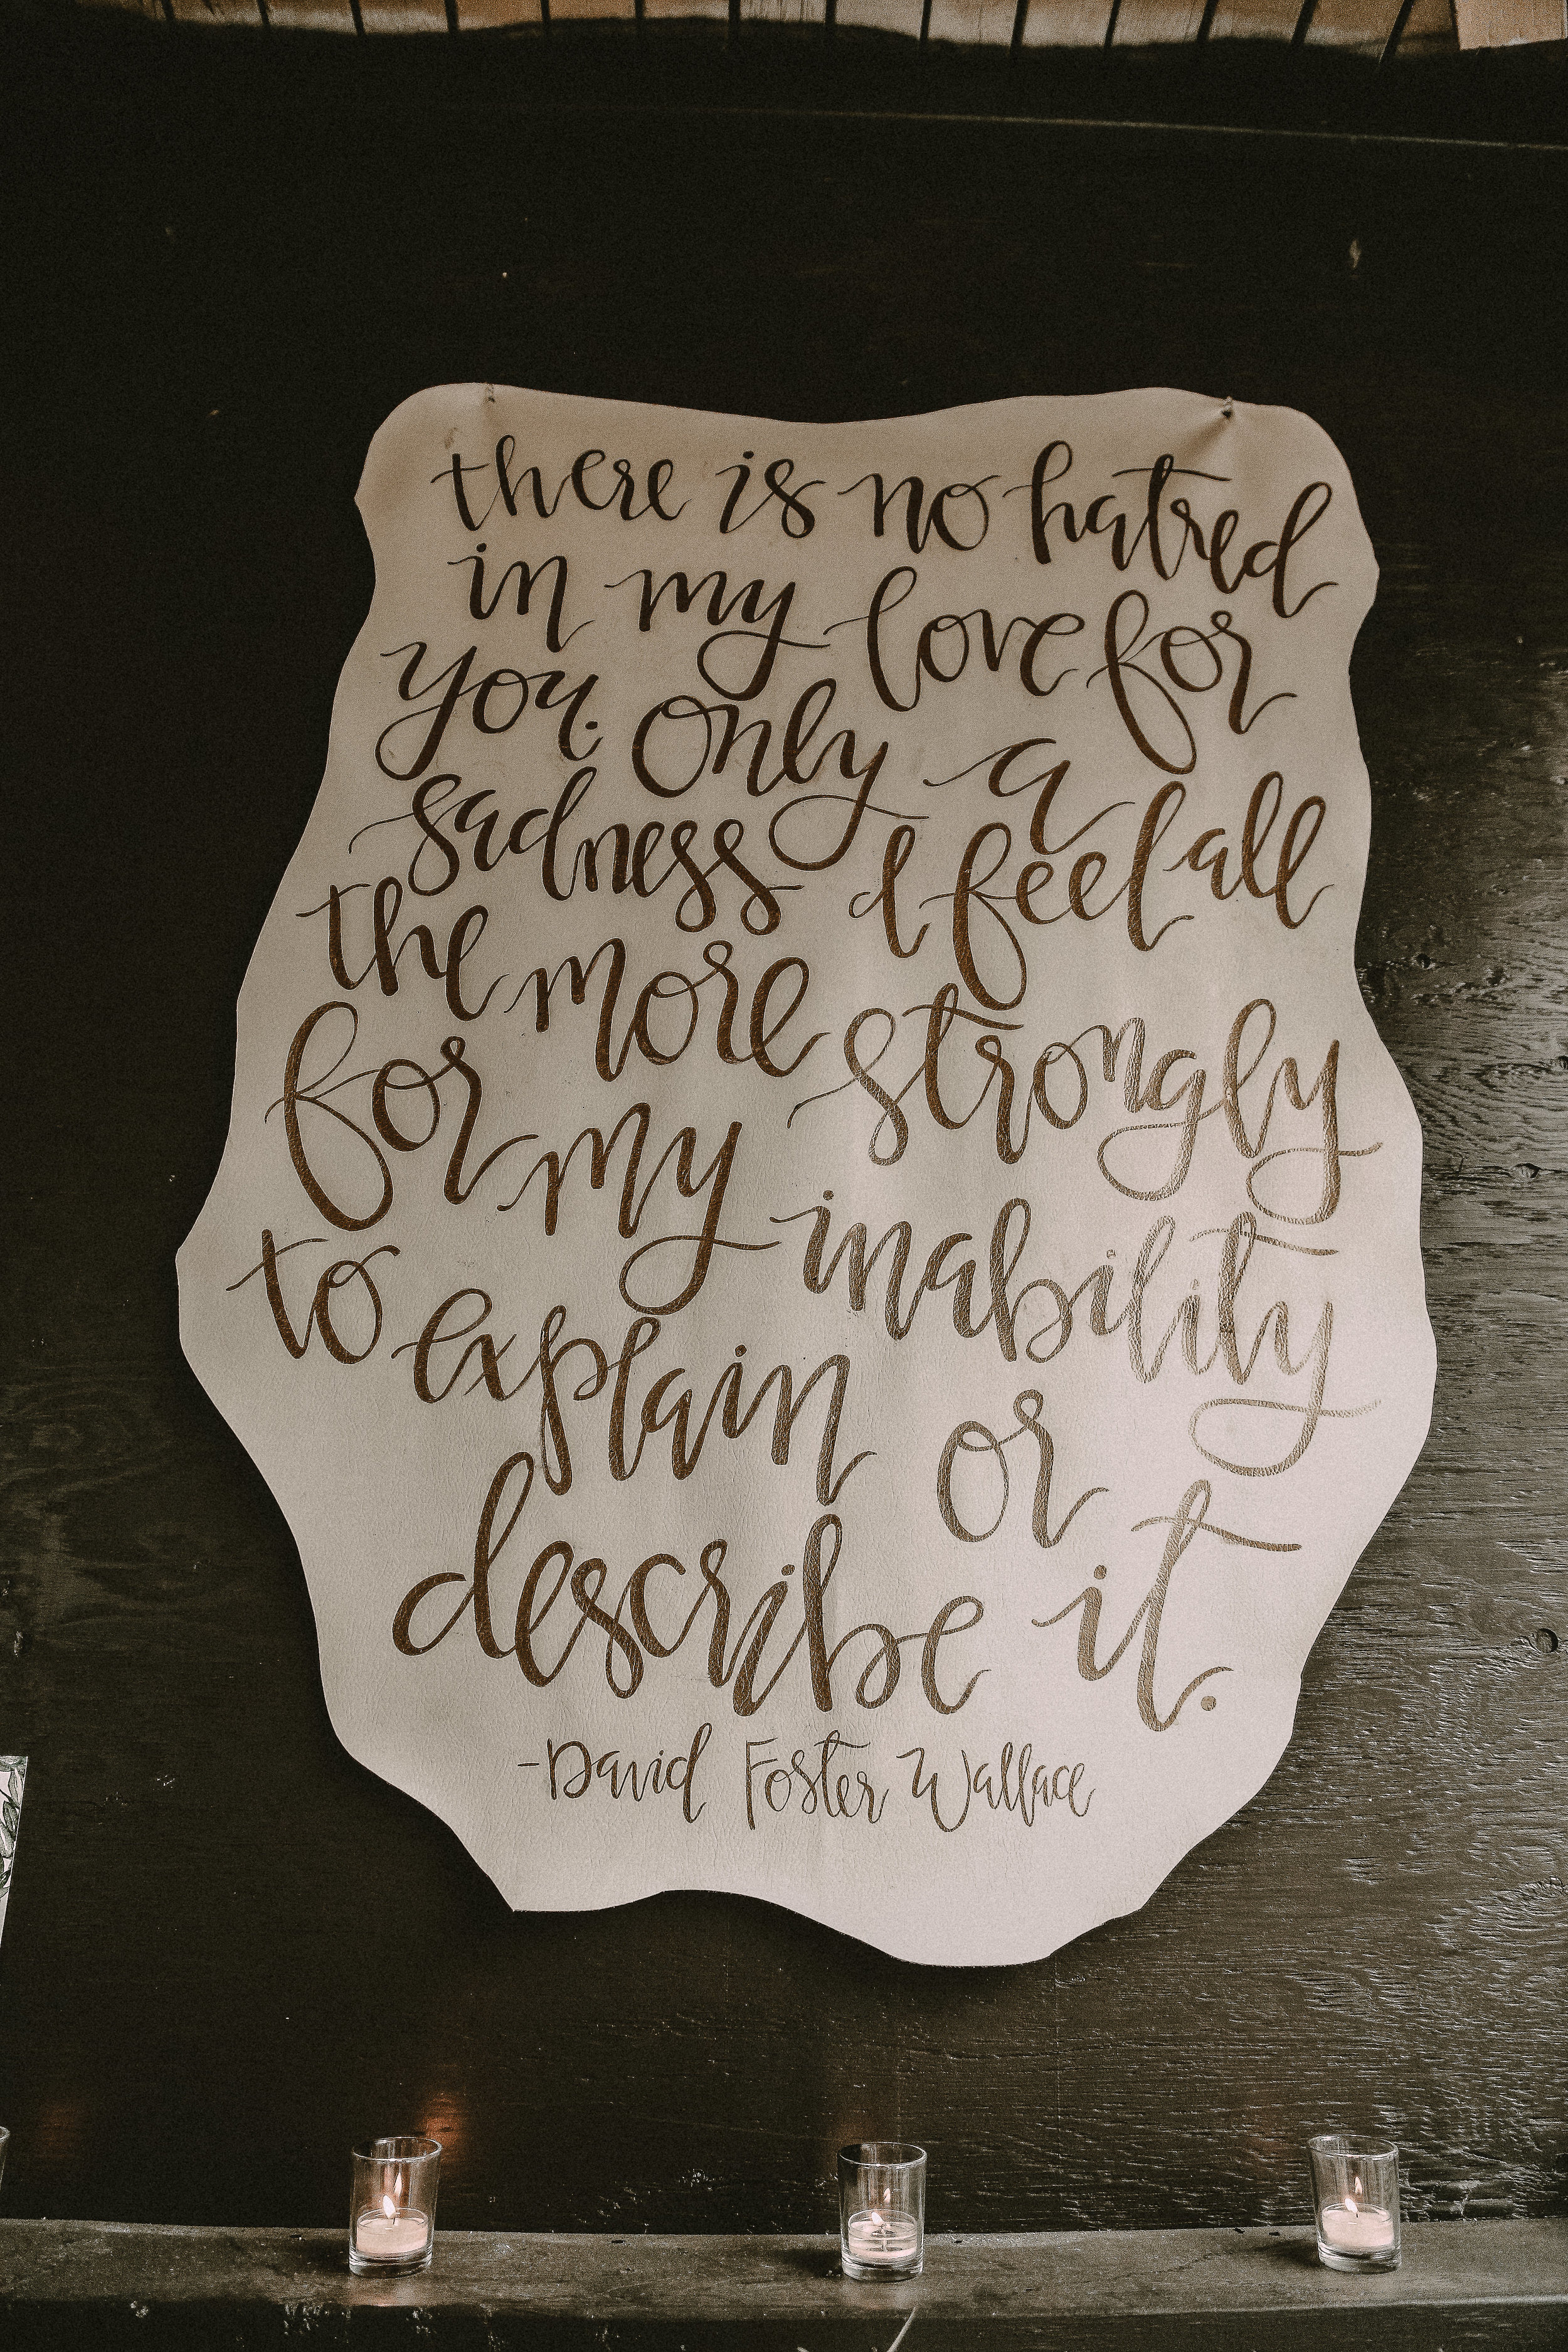 there is no hatred
in my love for
you. Only a
sadness I feel all
the more strongly
for my inability
to explain or
describe it.
-David Foster Wallace